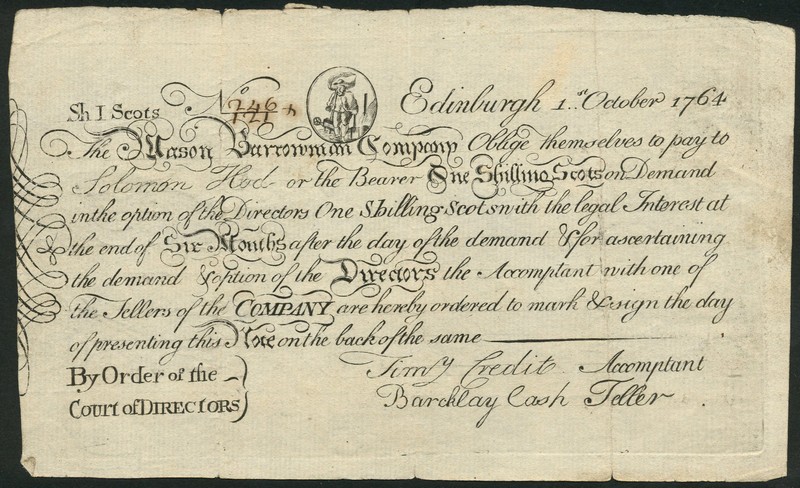 Sh I Scots No. Edinburgh 1st October 1764
The Mason Barrowman Company Oblige themselves to pay to
Solomon Hod or the Bearer One Shilling Scots on Demand
in the option of the Directors One Shilling Scots with the legal Interest at
the end of Six Months after the day of the demand & for ascertaining
the demand & option of the Directors the Accomptant with one of
the Tellers of the COMPANY are hereby ordered to mark & sign the day
of presenting this Note on the back of the same
By Order of the
Court of DIRECTORS
Timy Credit Accomptant
Barcklay Cash Teller